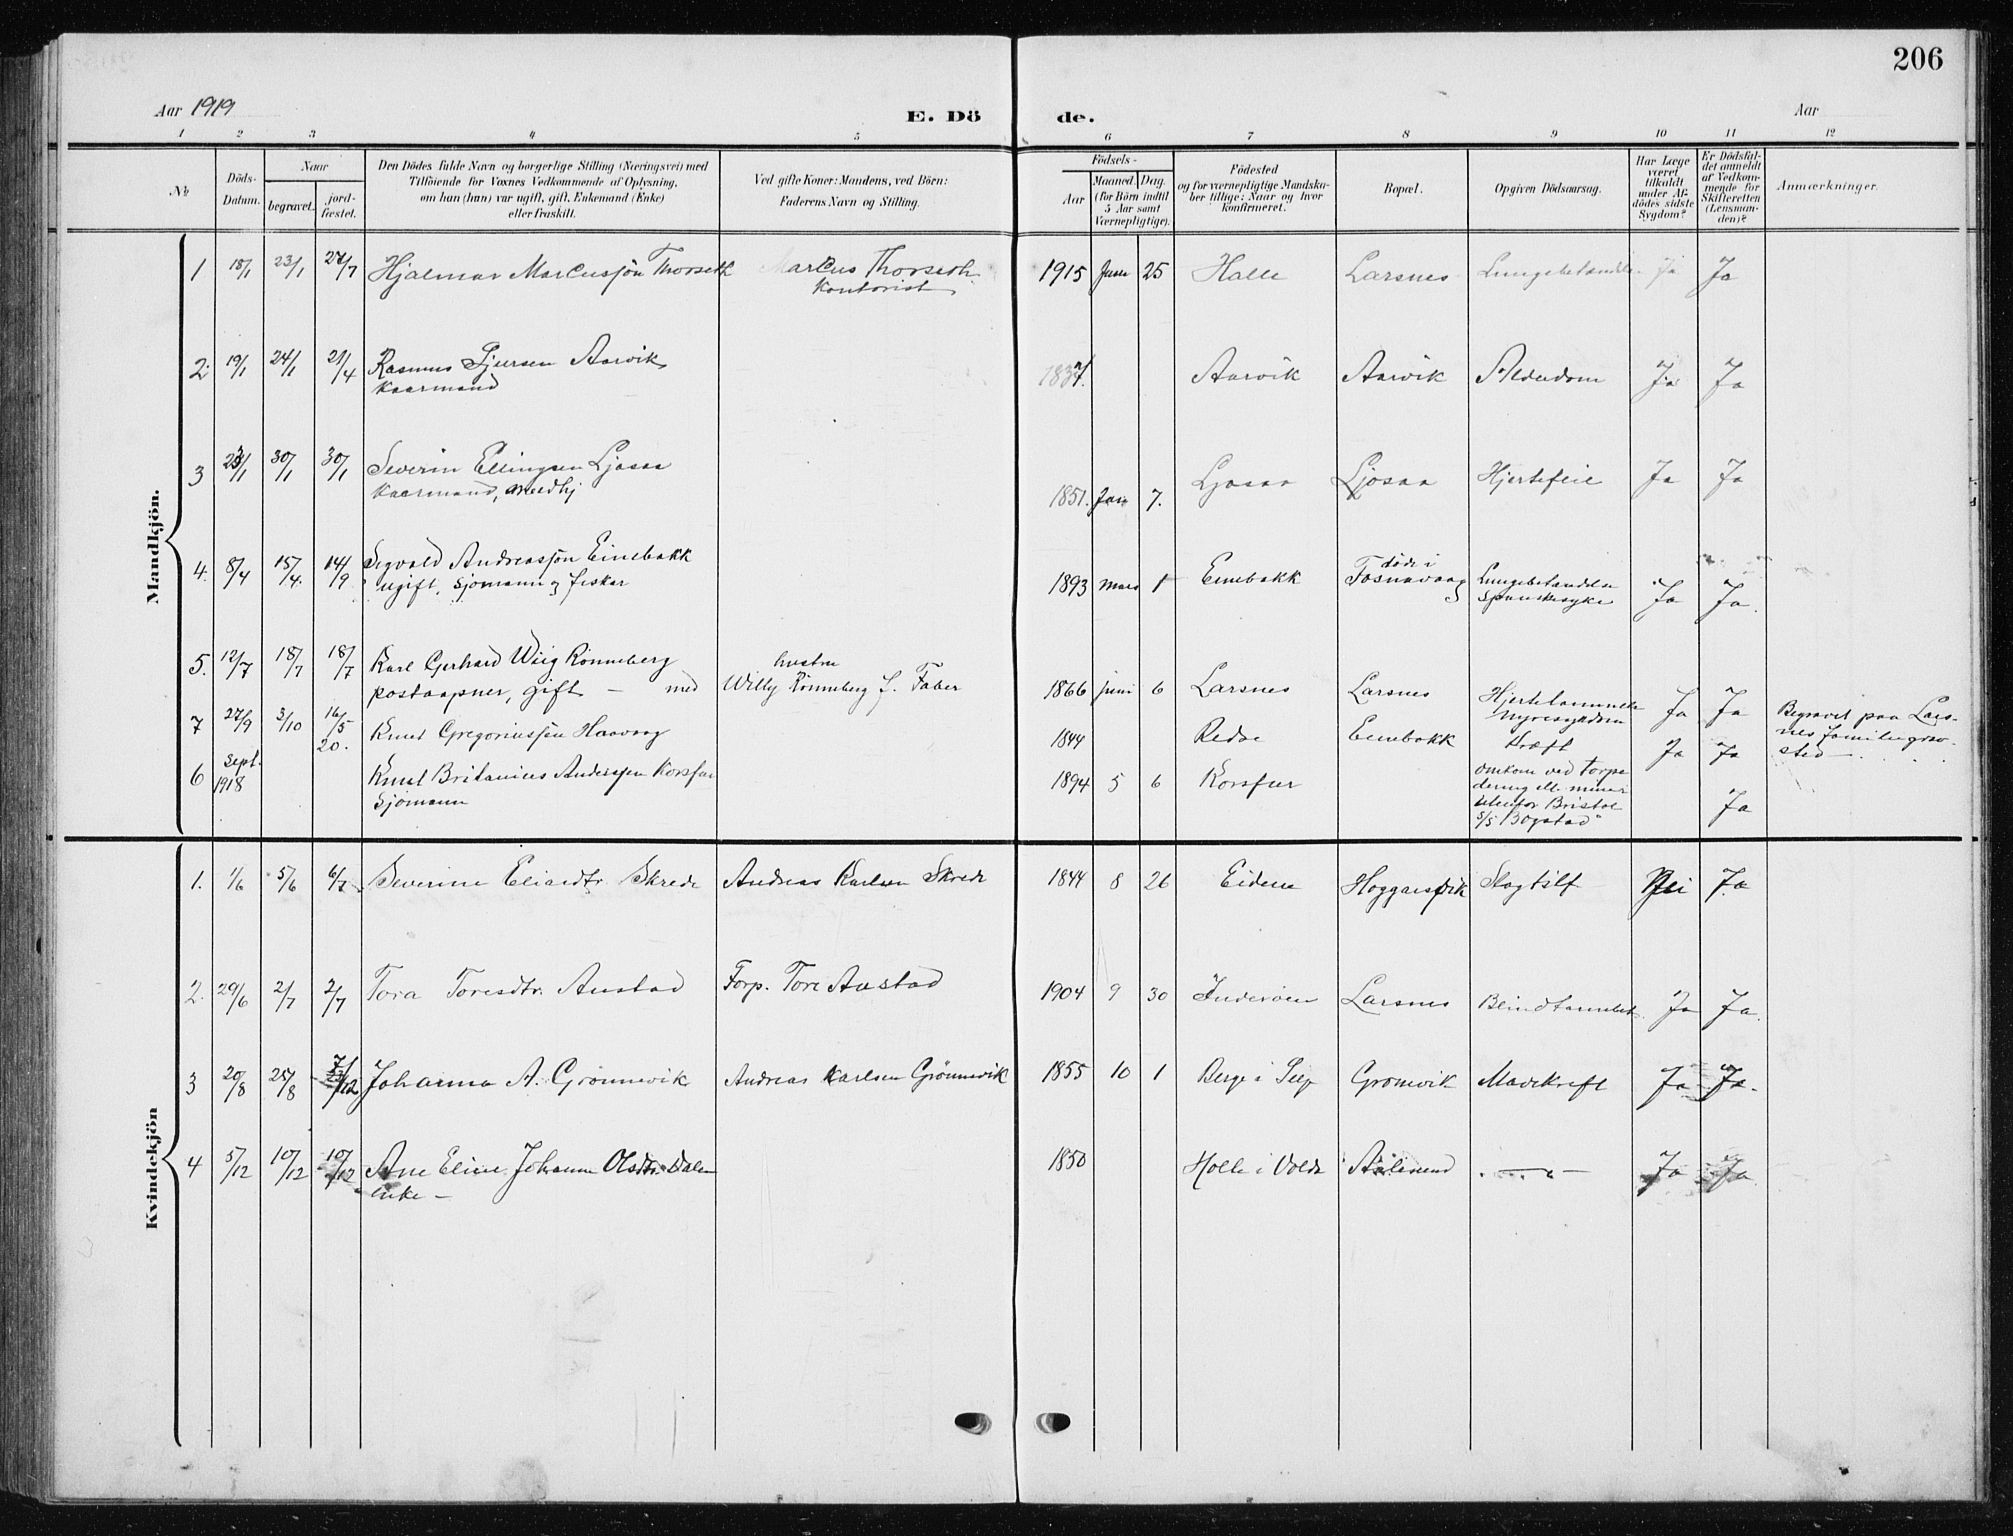 206
Aar 1919
E. Dö
de.
Aar
1 2 3 4 5 6 7 8 9 10 11 12
No
Döds-
Datum.
Naar
begravet.
jord-
fæstet.
Den Dödes fulde Navn og borgerlige Stilling (Næringsvei) med
Tilföiende for Voxnes Vedkommende af Oplysning,
om han (hun) var ugift, gift, Enkemand (Enke)
eller fraskilt.
Ved gifte Koner: Mandens, ved Börn:
Faderens Navn og Stilling.
Födsels-
Aar
Maaned. Dag.
(for Börn indtil
5 Aar samt
Værnepligtige).
Födested
og for værnepligtige Mandska-
ber tillige: Naar og hvor
konfirmeret.
Bopæl.
Opgiven Dödsaarsag.
Har Læge
været
tilkaldt
under Af-
dödes sidste
Sygdom?
Er Dödsfal-
det anmeldt
af Vedkom-
mende for
Skifteretten
(Lensman-
den)?
Anmærkninger.
Mandkjön.
1 18/1 23/1 27/7 Hjalmar Marcussön Thorseth Marcus Thorseth 1915 Juni 25 Halle Larsnes Lungebetændelse Ja Ja
Kontorist
2 19/1 24/1 21/4 Rasmus Sjursen Aarvik 1837. Aarvik Aarvik Alderdom Ja Ja
Kaarmand
3 23/1 30/1 30/1 Severin Ellingsen Ljosaa 1851. Jan 7. Ljosaa Ljosaa Hjertefeil Ja Ja
Kaarmand,
4. 8/4 15/4. 14/9 Sigvald Andreassjön Einebakk 1893 Mars 1 Einebakk döde i
Fosnavaag Lungebetændelse
ugift, sjömann og fisker Spanskesyke Ja Ja.
5. 12/7 18/7 18/7 Karl Gerhard Wiig Rönneberg hustru
postaapner, gift — med Willy Rönneberg f. Faber 1866 juni 6 Larsnes Larsnes Hjertelammelse
Nyresygdom Ja Ja Begravet paa Lars-
nes familiegrav-
sted
7 27/9 3/10 16/5 20. Knut Gregoriussjön Haavaag 1844 Redse Einebakk Kræft Ja Ja
6 Sept. 1918 Knut Britanius Anderssen Korsfur 1894 5 6 Korsfur omkom ved torpe
Sjömann dering ell. miner
utenfor Bristol
S/S "Bogstad" Ja
Kvindekjön
1. 1/6 5/6 6/7 Severine Eliasdtr Skrede Andreas Karlsen Skrede 1844 8 26 Eidene Hoggarsvik Slagtilf Nei Ja
2. 29/6 2/7 2/7 Tora Toresdtr. Austad Forp. Tore Austad 1904 9 30 Inderöen Larsnes Blindtarmbet. Ja Ja.
3 20/8 25/8 7/12 Johanna A. Grönnevik Andreas Karlsen Grönnevik 1855 10 1 Berge i Selje Grönnvik Mavekreft Ja Ja.
4 5/12 10/12 10/12 Ane Eline Johanne Olsdtr. Dalen 1850 Holle i Volde Aalesund — " — Ja Ja
Enke —